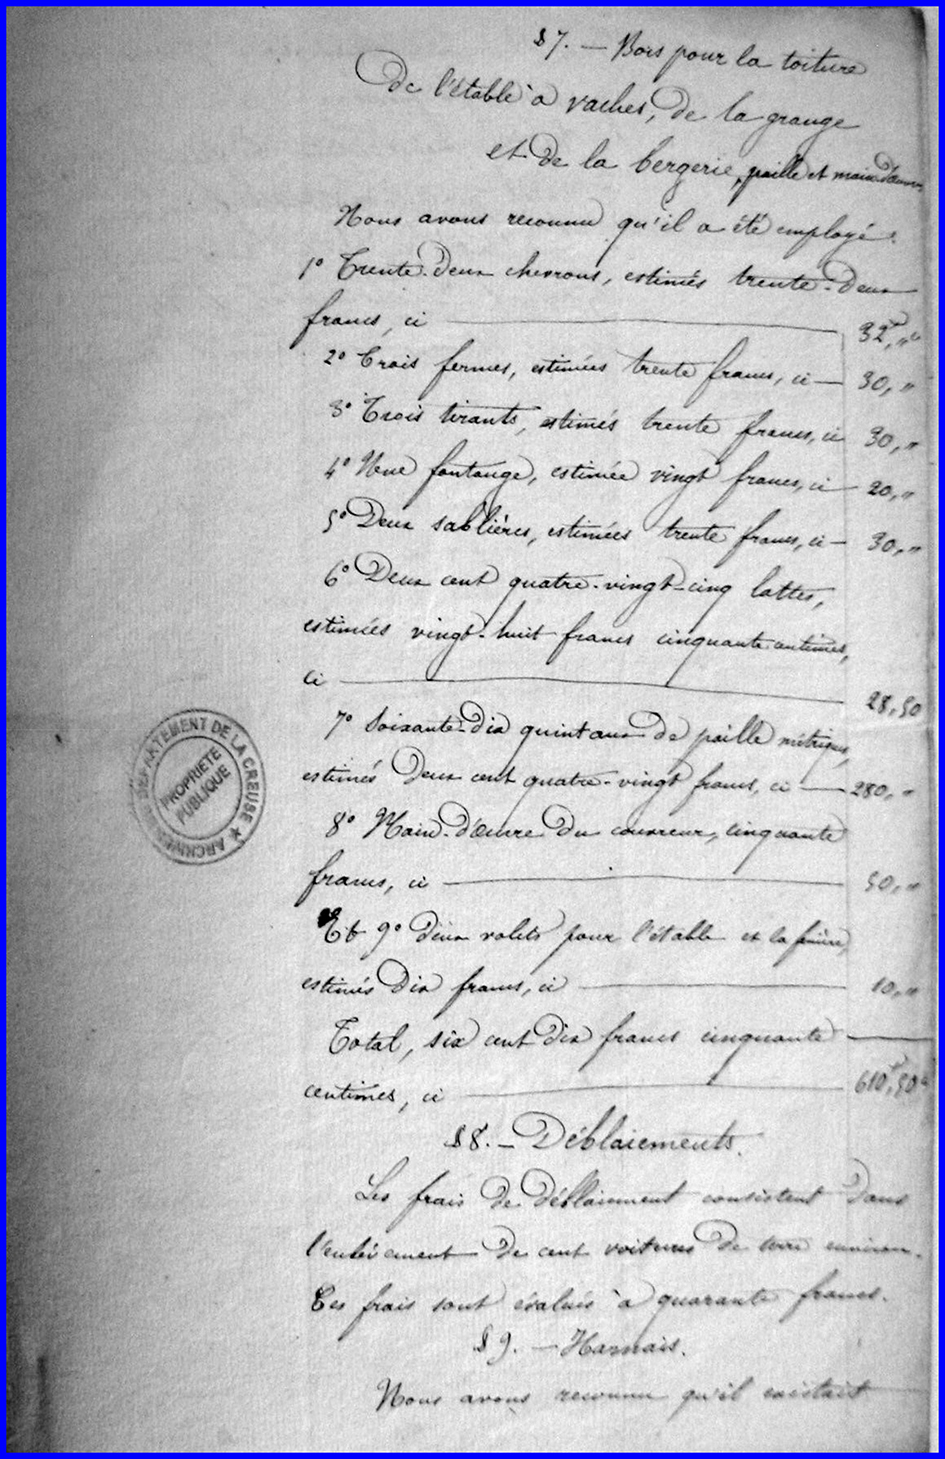 §7. — Bois pour la toiture
de l'étable à vaches, de la grange
et de la bergerie, paille et main d'œuvre
Nous avons reconnu qu'il a été employé :
1° Trente-deux chevrons, estimés trente-deux
francs, ci — 32f,"c
2° Trois fermes, estimées trente francs, ci — 30,"
3° Trois tirants, estimés trente francs, ci 30,"
4° Une fontange, estimée vingt francs, ci — 20,"
5° Deux sablières, estimées trente francs, ci — 30,"
6° Deux cent quatre-vingt-cinq lattes,
estimées vingt-huit francs cinquante centimes,
ci — 28,50
7° Soixante-dix quintaux de paille métriques,
estimés deux cent quatre-vingt francs, ci — 280,"
8° Main-d'œuvre du couvreur, cinquante
francs, ci — 50,"
Et 9° deux volets pour l'étable et la
estimés dix francs, ci — 10,"
Total, six cent dix francs cinquante
centimes, ci — 610f,50c
§8. — Déblaiements.
Les frais de déblaiement consistent dans
l'enlèvement de cent voitures de terre environ.
Ces frais sont évalués à quarante francs.
§9. — Harnais.
Nous avons reconnu qu'il existait
ARCHIVES DU DÉPARTEMENT DE LA CREUSE ★
PROPRIÉTÉ
PUBLIQUE